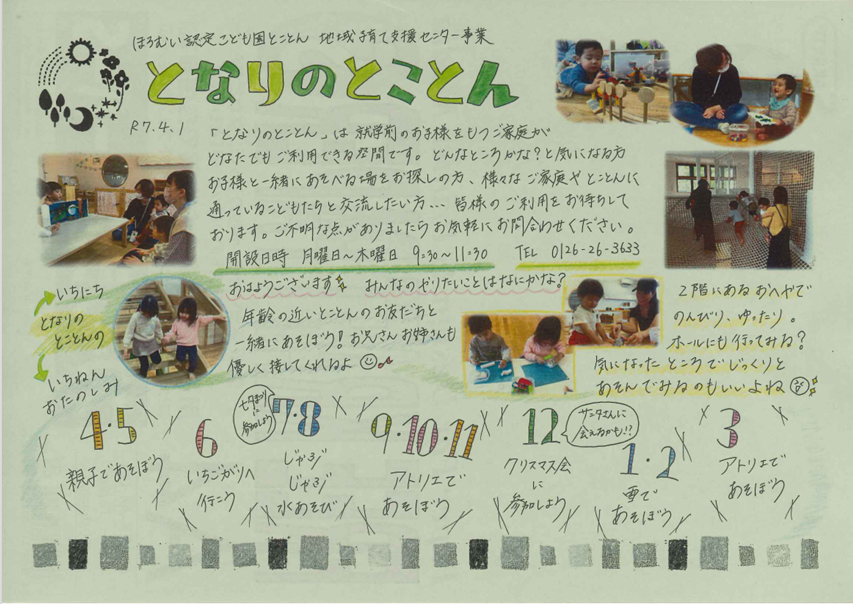 ほろむい認定こども園とことん 地域子育て支援センター事業
となりのとことん
R7.4.1
「となりのとことん」は 就学前のお子様をもつご家庭が
どなたでもご利用できる空間です。どんなところかな?と気になる方
お子様と一緒にあそべる場をお探しの方、様々なご家庭やとことんに
通っているこどもたちと交流したい方… 皆様のご利用をお待ちして
おります。ご不明な点がありましたらお気軽にお問合わせください。
開設日時 月曜日~木曜日 9:30~11:30 TEL 0126-26-3633
いちにち
となりの
とことんの
いちねん
おたのしみ
おはようございます
年齢の近いとことんのお友だちと
一緒にあそぼう!お兄さんお姉さんも
優しく接してくれるよ
みんなのやりたいことはなにかな?
2階にあるおへやで
のんびり、ゆったり。
ホールにも行ってみる?
気になったところでじっくりと
あそんでみるのもいいよね
4・5
親子であそぼう
6
いちごがりへ
行こう
七夕まつり
に
参加しよう
7・8
じゃぶ
じゃぶ
水あそび
9・10・11
アトリエで
あそぼう
12
サンタさんに
会えるかも!?
クリスマス会
に
参加しよう
1・2
雪で
あそぼう
3
アトリエで
あそぼう